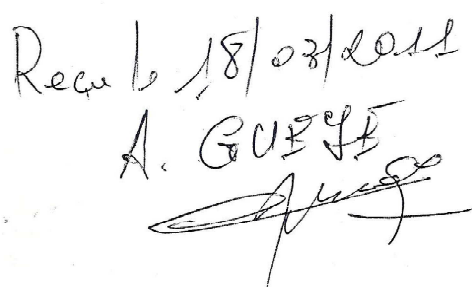 Reçu le 18/03/2011
A. GUEYE